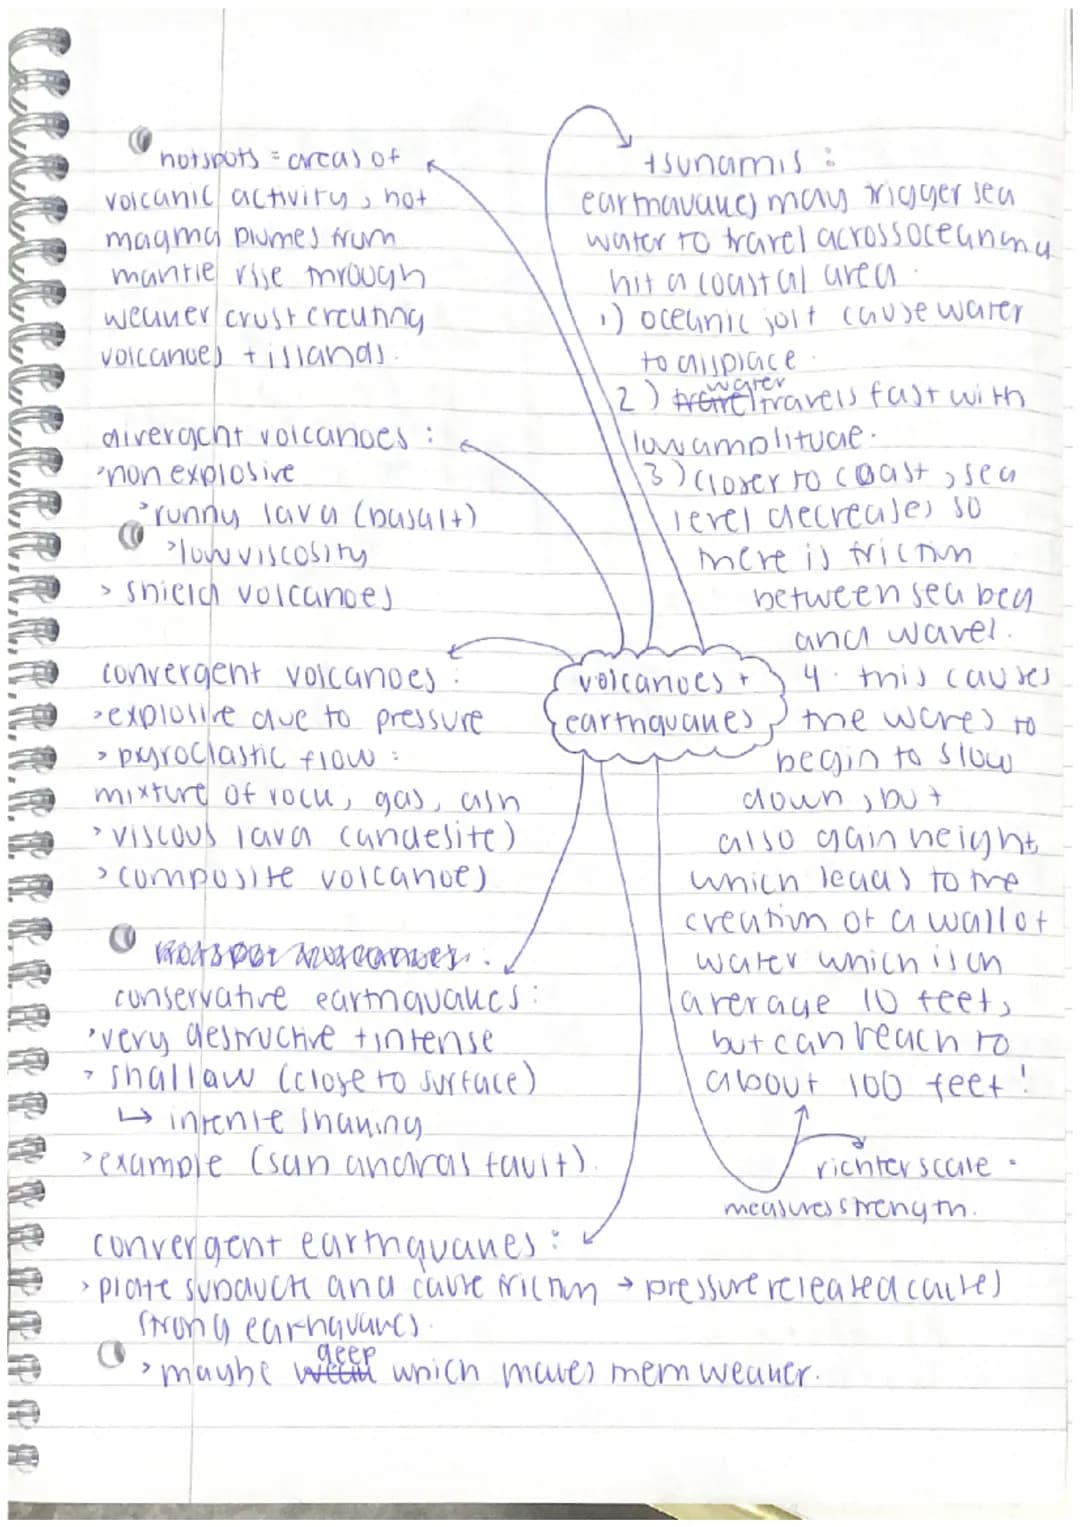 hotspots = areas of
volcanic activity, hot
magma plumes from
mantle rise through
weaker crust creating
volcanoes + islands.
divergent volcanoes :
> non explosive
> runny lava (basalt)
> low viscosity
> shield volcanoes
convergent volcanoes :
> explosive due to pressure
> pyroclastic flow :
mixture of rock, gas, ash
> viscous lava (andesite)
> composite volcanoes
conservative earthquakes :
> very destructive + intense
> shallow (close to surface)
↳ intense shaking
> example (san andras fault).
convergent earthquakes :
> plate subduct and cause friction → pressure released causes
strong earhquakes.
> maybe deep which makes them weaker.
volcanoes +
earthquakes
tsunamis :
earthquakes may trigger sea
water to travel across ocean and
hit a coastal area.
1) oceanic jolt cause water
to displace.
2) water travels fast with
low amplitude.
3) closer to coast, sea
level decreases so
there is friction
between sea bed
and wavel.
4. this causes
the waves to
begin to slow
down, but
also gain height
which leads to the
creation of a wall of
water which is on
average 10 feet,
but can reach to
about 100 feet!
richter scale -
measures strength.